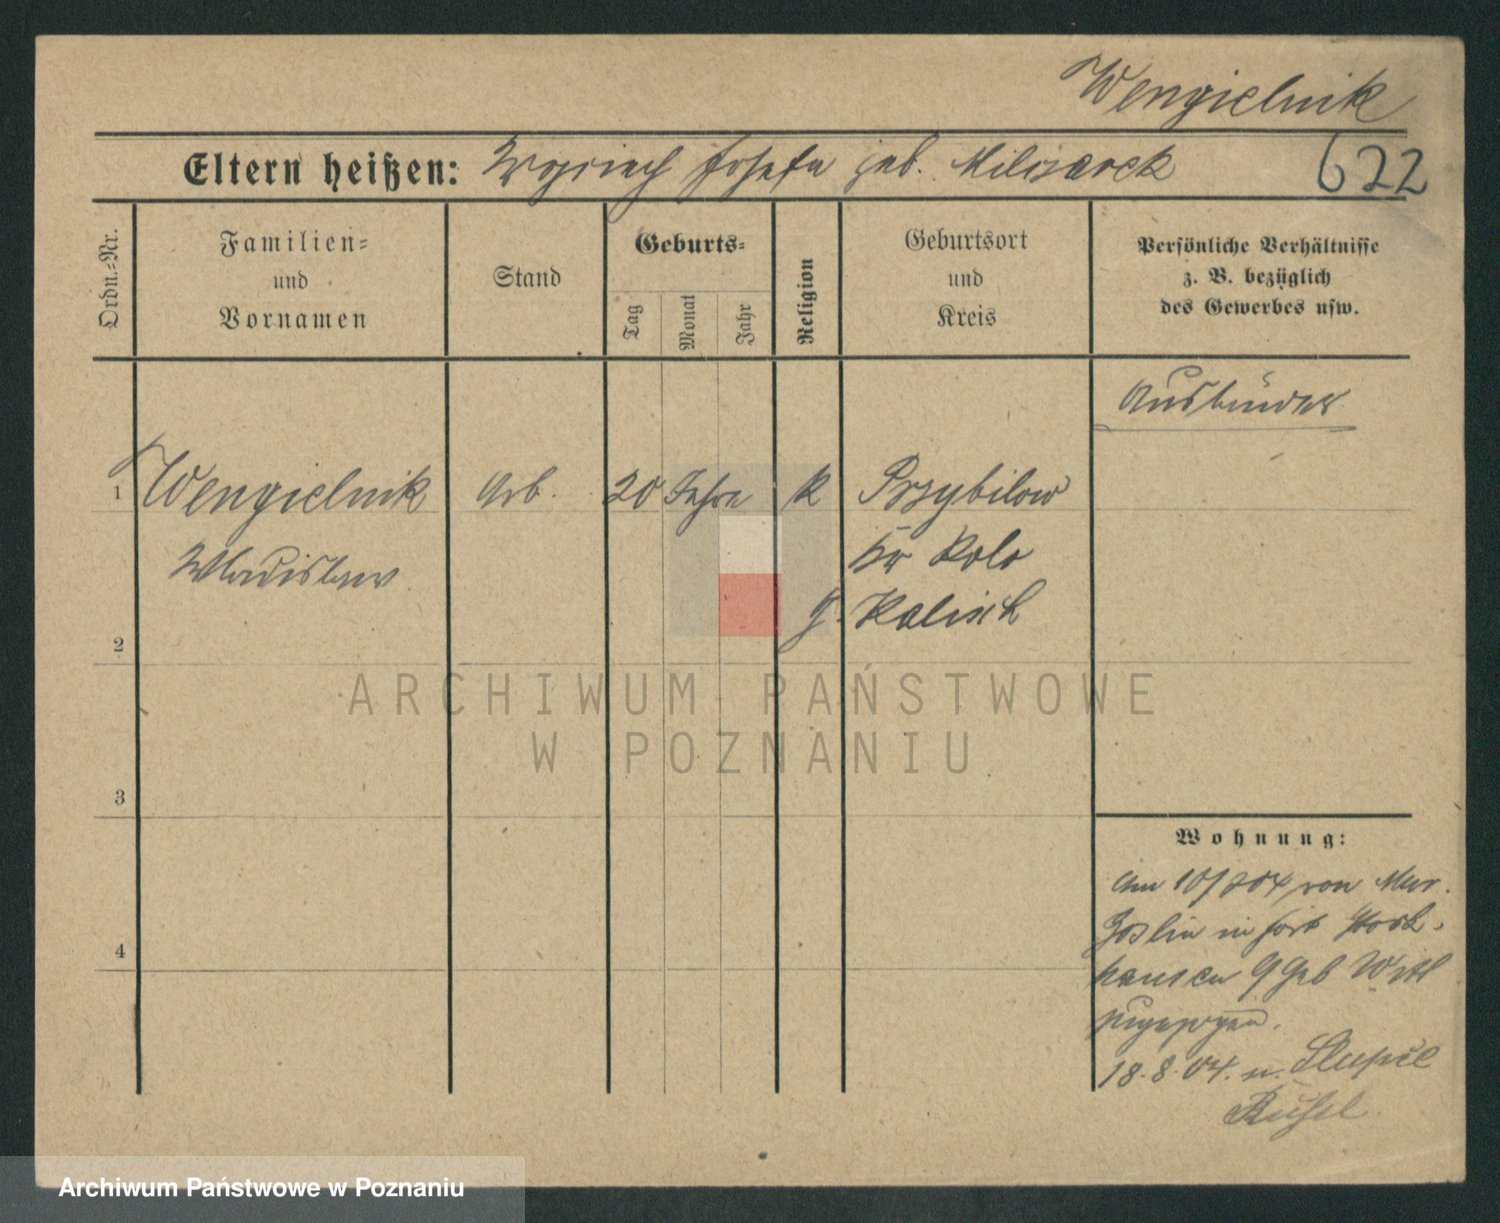 Wengielnik
Eltern heißen: Wojciech Josefa geb. Miliszarek
622
Ordn.-Nr.
Familien-
und
Vornamen
Stand
Geburts-
Tag
Monat
Jahr
Religion
Geburtsort
und
Kreis
Persönliche Verhältnisse
z. B. bezüglich
des Gewerbes usw.
Ausländer
1 Wengielnik Arb. 20 Jahre k Przybilow
Wladislaw Kr Kolo
G. Kalisch
2
3
4
ARCHIWUM PAŃSTWOWE
W POZNANIU
Wohnung:
Am 10/8 04 von Mur.
Goslin in fort
hausen Geb
zugezogen.
18.8.04. n.
Archiwum Państwowe w Poznaniu